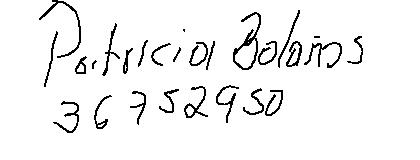 Patricia Bolaños
36752950